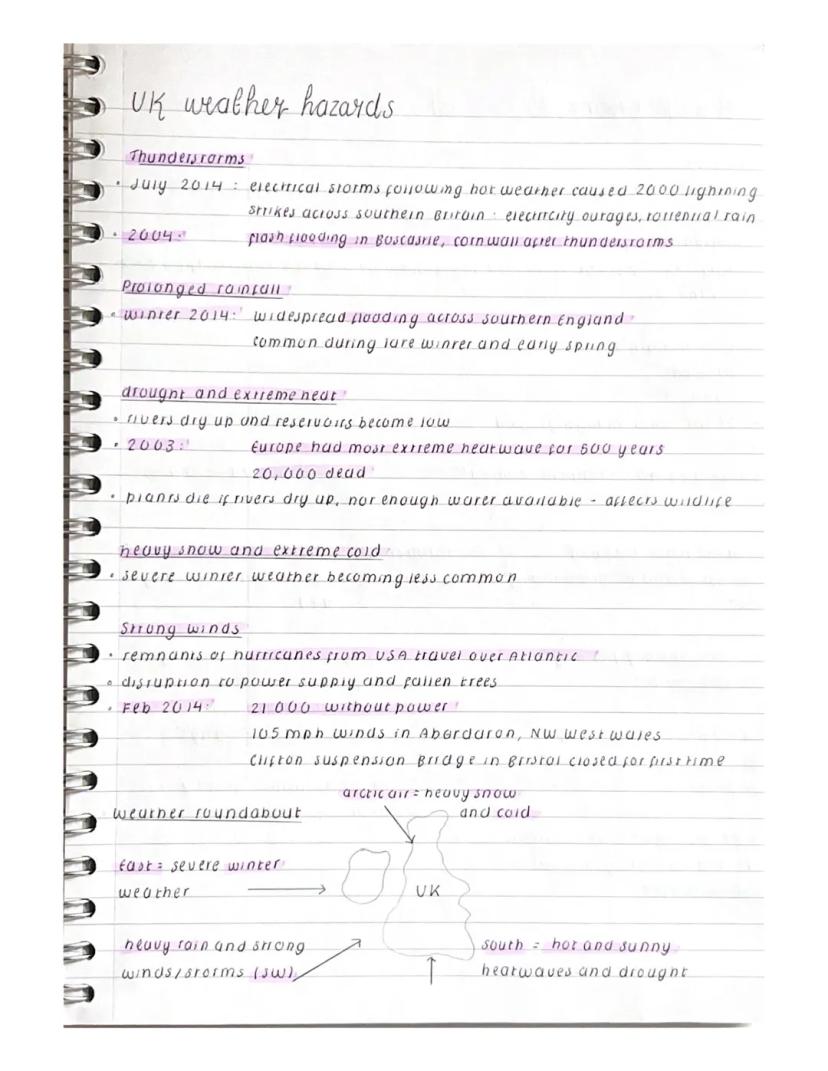 UK weather hazards
Thunderstorms
• July 2014 : electrical storms following hot weather caused 2000 lightning
strikes across southern Britain : electricity outages, torrential rain
• 2004: flash flooding in Boscastle, cornwall after thunderstorms
Prolonged rainfall
• winter 2014: widespread flooding across southern England
common during late winter and early spring
drought and extreme heat
• rivers dry up and reservoirs become low
• 2003: Europe had most extreme heatwave for 500 years
20,000 dead
• plants die if rivers dry up, not enough water available - affects wildlife
heavy snow and extreme cold
• severe winter weather becoming less common
Strong winds
• remnants of hurricanes from USA travel over Atlantic
• disruption to power supply and fallen trees
• Feb 2014: 21 000 without power
105 mph winds in Aberdaron, NW West wales
Clifton suspension Bridge in Bristol closed for first time
arctic air = heavy snow
weather roundabout and cold
East = severe winter
weather UK
heavy rain and strong south = hot and sunny
winds/storms (SW) heatwaves and drought